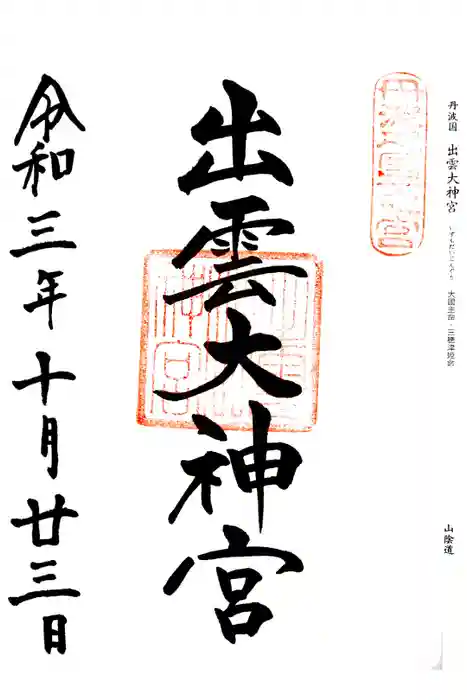 丹波国 出雲大神宮 いずもだいじんぐう 大国主命・三穂津姫命
山陰道
出雲大神宮
令和三年十月廿三日